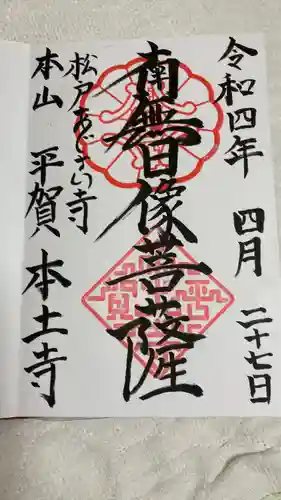 令和四年 四月 二十七日
南無日像菩薩
松戸あじさい寺
本山 平賀 本土寺